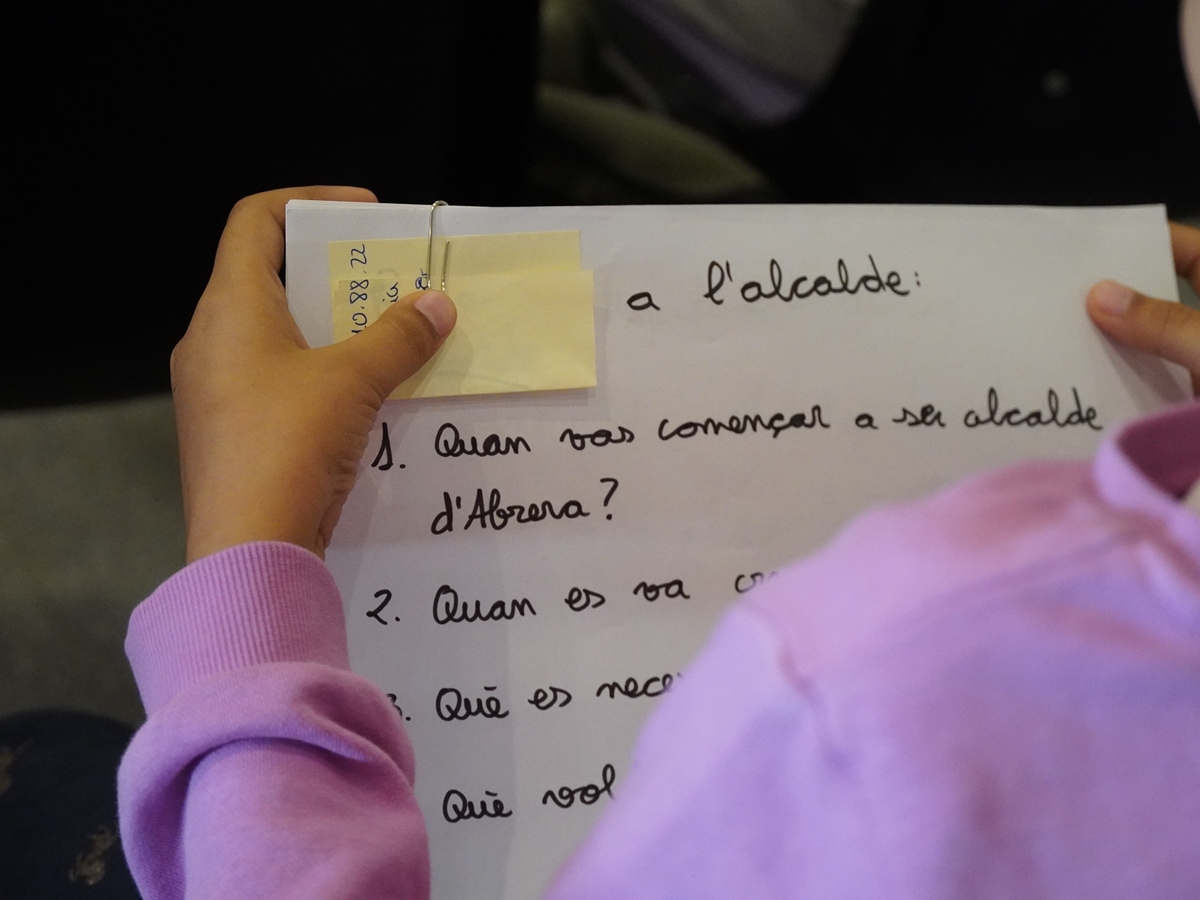 a l'alcalde:
1. Quan vas començar a ser alcalde
d'Abrera?
2. Quan es va
3. Què es
Què